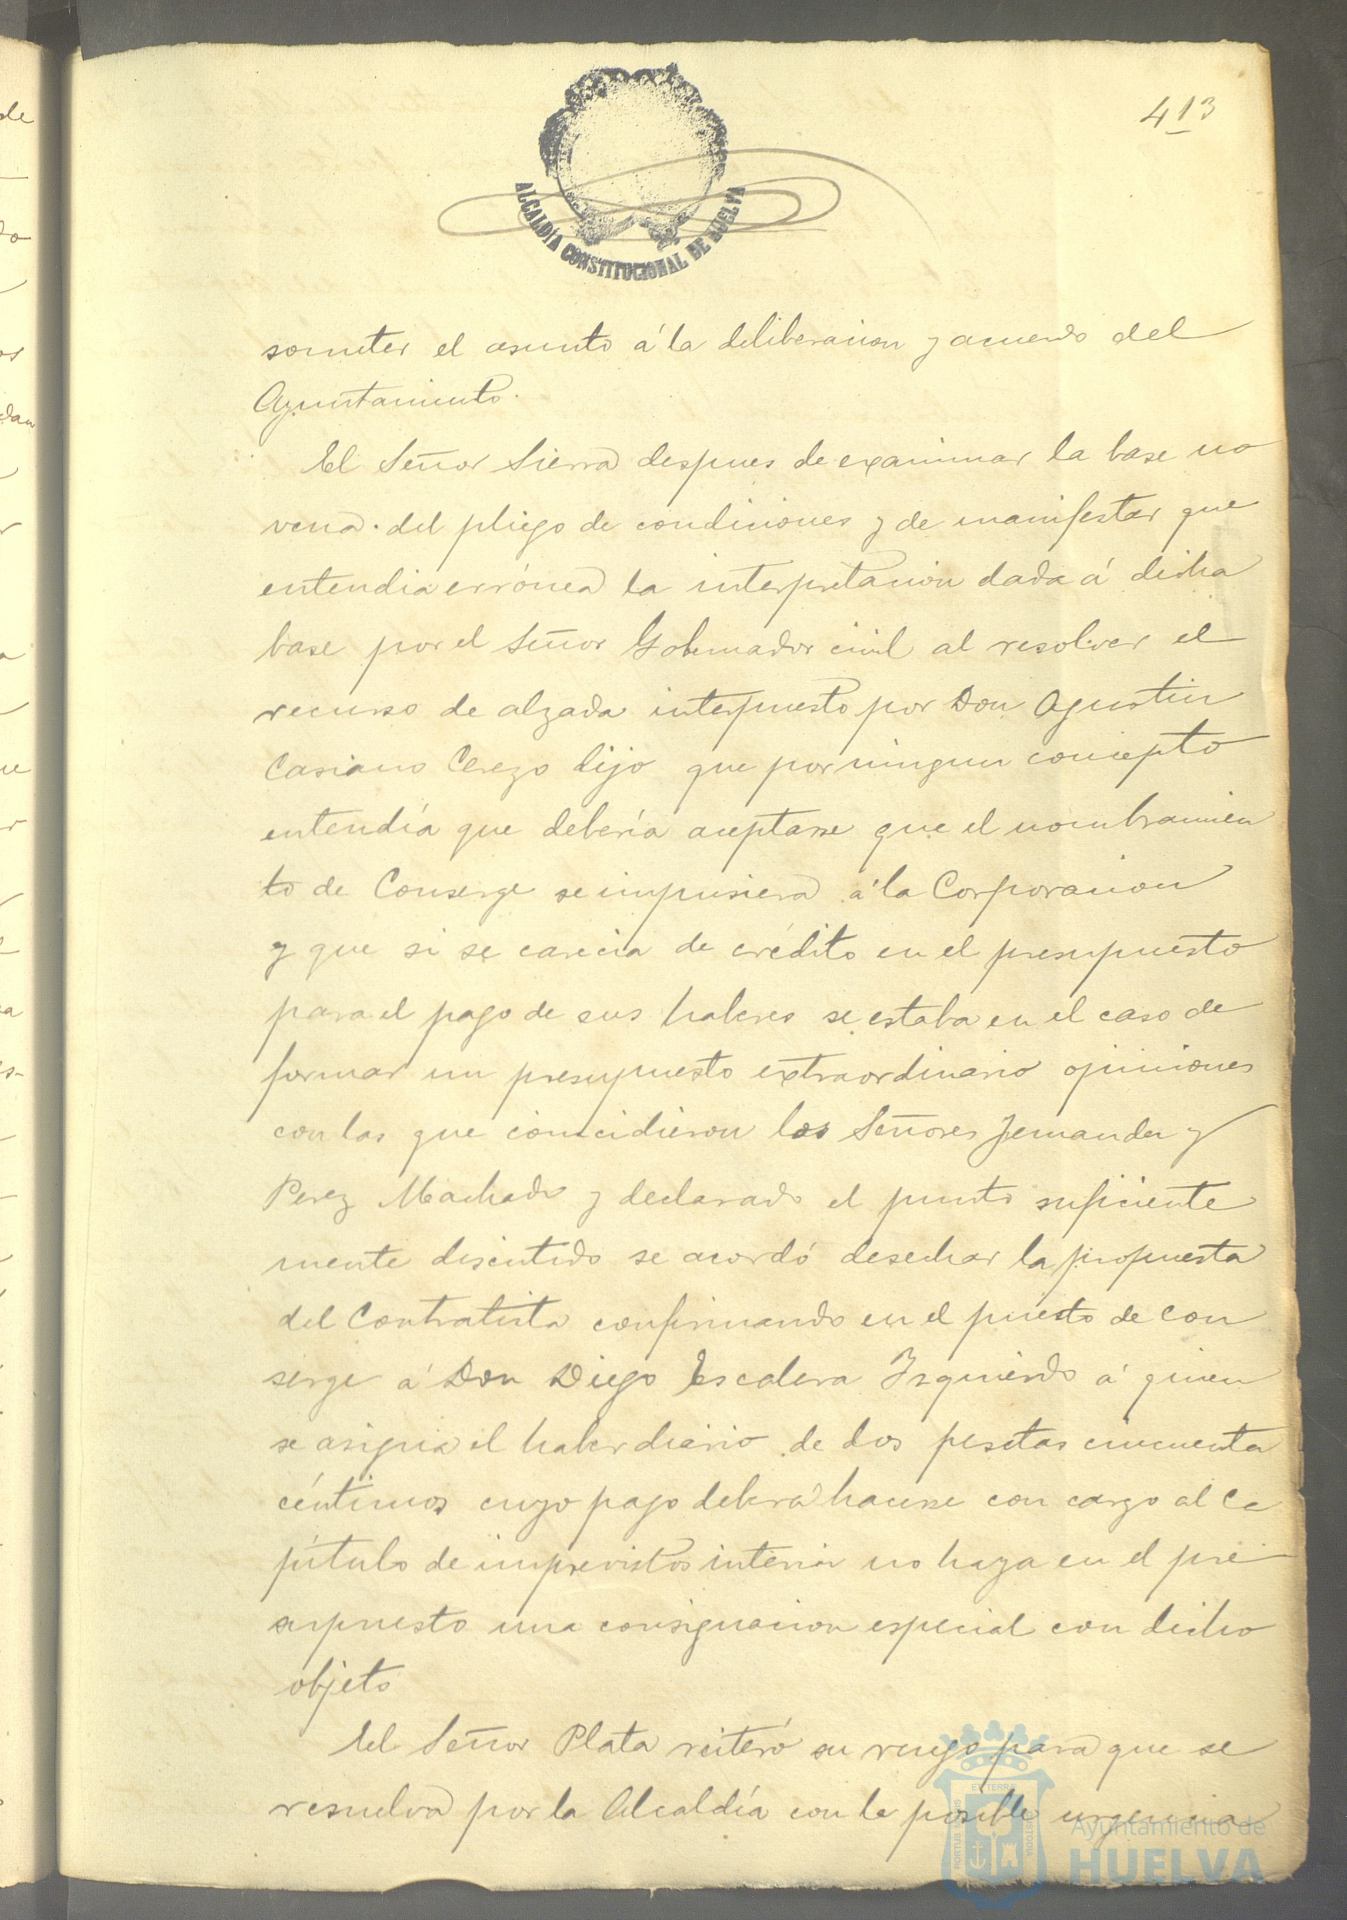 413
ALCALDÍA CONSTITUCIONAL DE HUELVA
someter el asunto á la deliberacion y acuerdo del
Ayuntamiento.
El Señor Sierra despues de examinar la base no
vena del pliego de condiciones y de manifestar que
entendia errónea la interpretacion dada á dicha
base por el Señor Gobernador civil al resolver el
recurso de alzada interpuesto por Don Agustin
Casiano Cerezo dijo que por ningun concepto
entendía que debería aceptarse que el nombramien
to de Conserge se impusiera á la Corporacion
y que si se carecia de crédito en el presupuesto
para el pago de sus haberes se estaba en el caso de
formar un presupuesto extraordinario opiniones
con las que coincidieron los Señores Fernandez y
Perez Machado y declarado el punto suficiente
mente discutido se acordó desechar la propuesta
del Contratista confirmando en el puesto de Con
serge á Don Diego Escalera Izquierdo á quien
se asigna el haber diario de dos pesetas cincuenta
céntimos cuyo pago deberá hacerse con cargo al Ca
pítulo de imprevistos interin no haya en el pre
supuesto una consignacion especial con dicho
objeto
El Señor Plata reiteró su ruego para que se
resuelva por la Alcaldía con la posible urgencia
Ayuntamiento de
HUELVA